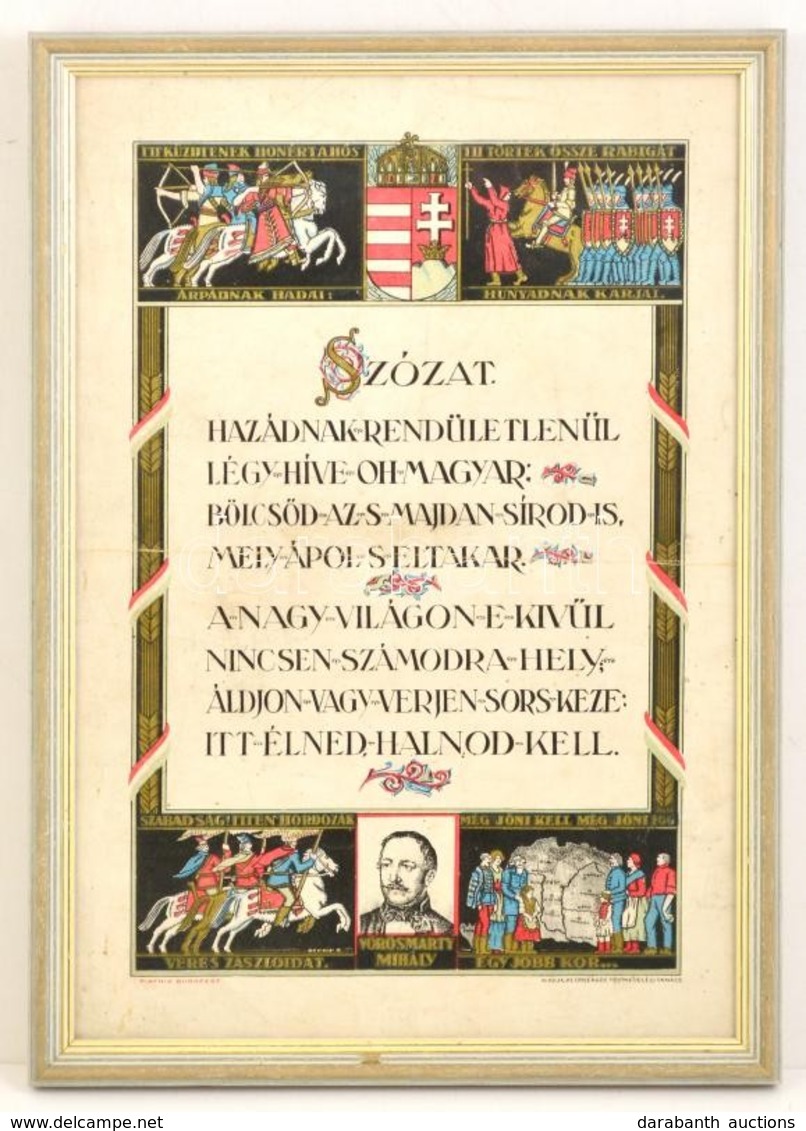 ITT KÜZDTENEK HONÉRT A HŐS
ÁRPÁDNAK HADAI:
ITT TÖRTEK ÖSSZE RABIGÁT
HUNYADNAK KARJAI.
SZÓZAT.
HAZÁDNAK RENDÜLETLENŰL
LÉGY HÍVE OH MAGYAR:
BÖLCSŐD AZ S MAJDAN SÍROD IS,
MELY ÁPOL S ELTAKAR.
A NAGY VILÁGON E KIVŰL
NINCSEN SZÁMODRA HELY;
ÁLDJON VAGY VERJEN SORS KEZE:
ITT ÉLNED, HALNOD KELL.
SZABADSÁG! ITTEN HORDOZÁK
VÉRES ZÁSZLÓIDAT.
VÖRÖSMARTY
MIHÁLY
MÉG JŐNI KELL MÉG JŐNI FOG
EGY JOBB KOR...
KLÖSZ BUDAPEST
darabanth
darabanth auctions